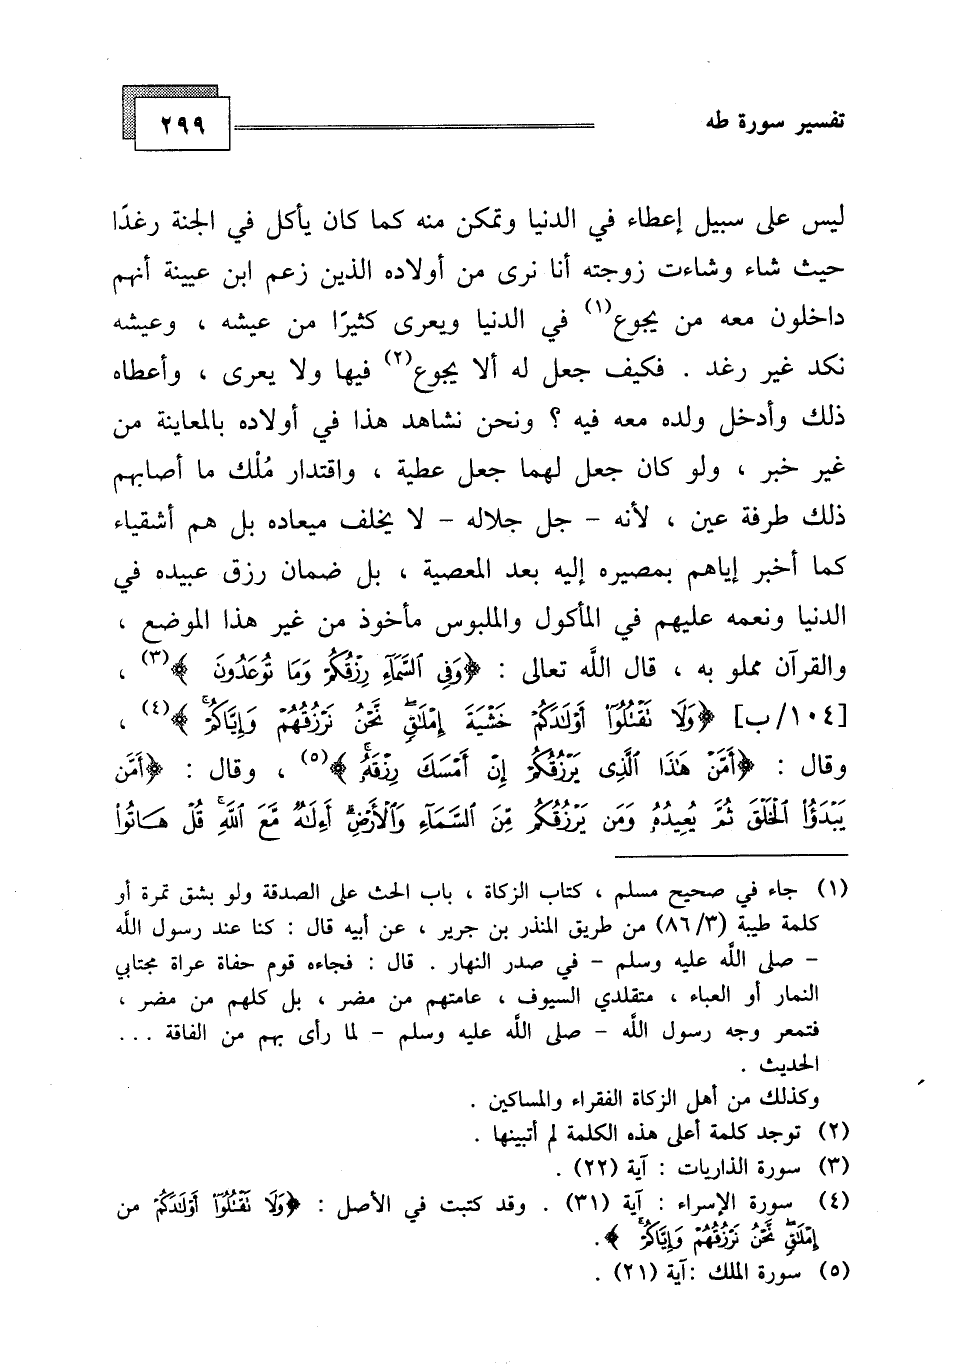 تفسير سورة طه
٢٩٩
ليس على سبيل إعطاء في الدنيا وتمكن منه كما كان يأكل في الجنة رغدًا
حيث شاء وشاءت زوجته أنا نرى من أولاده الذين زعم ابن عيينة أنهم
داخلون معه من يجوع(١) في الدنيا ويعرى كثيرًا من عيشه ، وعيشه
نكد غير رغد . فكيف جعل له ألا يجوع(٢) فيها ولا يعرى ، وأعطاه
ذلك وأدخل ولده معه فيه ؟ ونحن نشاهد هذا في أولاده بالمعاينة من
غير خبر ، ولو كان جعل لهما جعل عطية ، واقتدار مُلْك ما أصابهم
ذلك طرفة عين ، لأنه - جل جلاله - لا يخلف ميعاده بل هم أشقياء
كما أخبر إياهم بمصيره إليه بعد المعصية ، بل ضمان رزق عبيده في
الدنيا ونعمه عليهم في المأكول والملبوس مأخوذ من غير هذا الموضع ،
والقرآن مملو به ، قال الله تعالى : ﴿وَفِي ٱلسَّمَآءِ رِزْقُكُمْ وَمَا تُوعَدُونَ﴾(٣) ،
[١٠٤/ب] ﴿وَلَا نَقْنُلُوٓا۟ أَوْلَٰدَكُمْ خَشْيَةَ إِمْلَٰقٍ ۖ نَّحْنُ نَرْزُقُهُمْ وَإِيَّاكُمْ ۚ﴾(٤) ،
وقال : ﴿أَمَّنْ هَٰذَا ٱلَّذِى يَرْزُقُكُمْ إِنْ أَمْسَكَ رِزْقَهُۥ ۚ﴾(٥) ، وقال : ﴿أَمَّن
يَبْدَؤُا۟ ٱلْخَلْقَ ثُمَّ يُعِيدُهُۥ وَمَن يَرْزُقُكُم مِّنَ ٱلسَّمَآءِ وَٱلْأَرْضِ ۗ أَءِلَٰهٌ مَّعَ ٱللَّهِ ۚ قُلْ هَاتُوا۟
(١) جاء في صحيح مسلم ، كتاب الزكاة ، باب الحث على الصدقة ولو بشق تمرة أو
كلمة طيبة (٨٦/٣) من طريق المنذر بن جرير ، عن أبيه قال : كنا عند رسول الله
- صلى الله عليه وسلم - في صدر النهار . قال : فجاءه قوم حفاة عراة مجتابي
النمار أو العباء ، متقلدي السيوف ، عامتهم من مضر ، بل كلهم من مضر ،
فتمعر وجه رسول الله - صلى الله عليه وسلم - لما رأى بهم من الفاقة ...
الحديث .
وكذلك من أهل الزكاة الفقراء والمساكين .
(٢) توجد كلمة أعلى هذه الكلمة لم أتبينها .
(٣) سورة الذاريات : آية (٢٢) .
(٤) سورة الإسراء : آية (٣١) . وقد كتبت في الأصل : ﴿وَلَا تَقْتُلُوٓا۟ أَوْلَٰدَكُم من
إِمْلَٰقٍ ۖ نَّحْنُ نَرْزُقُهُمْ وَإِيَّاكُمْ ۚ﴾ .
(٥) سورة الملك :آية (٢١) .